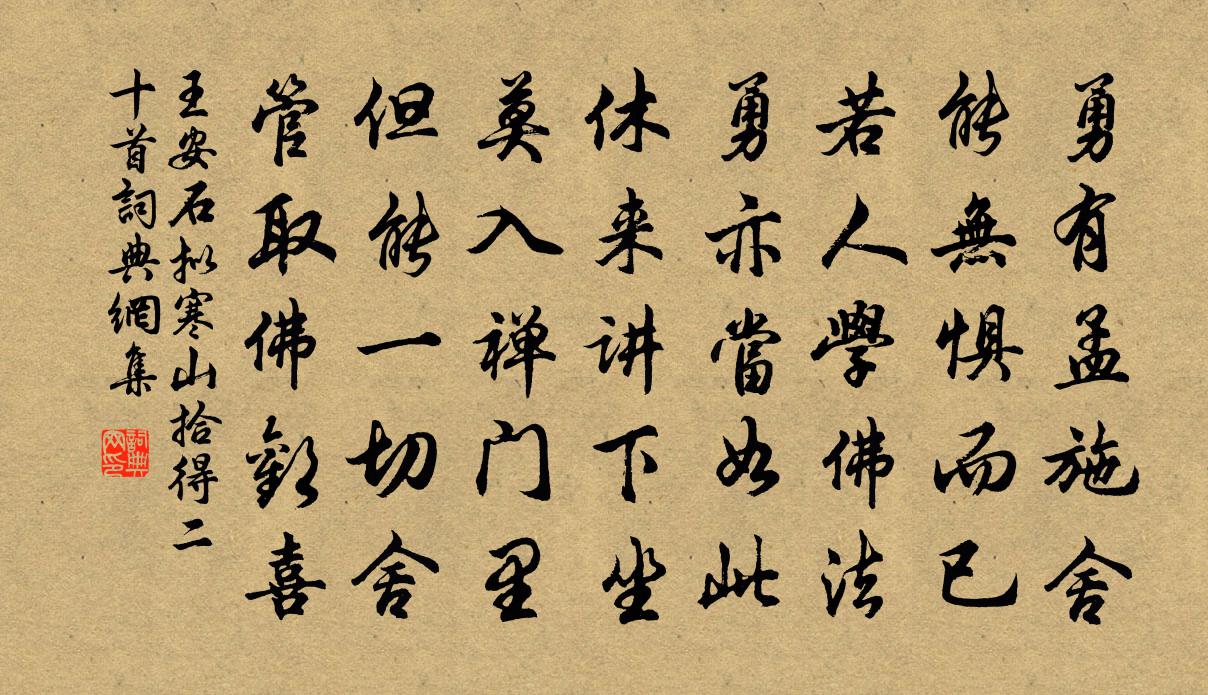 勇有孟施舍
能無惧而已
若人學佛法
勇亦當如此
休来讲下坐
莫入禅门里
但能一切舍
管取佛歡喜
王安石拟寒山拾得二
十首詞典網集
詞典
网印